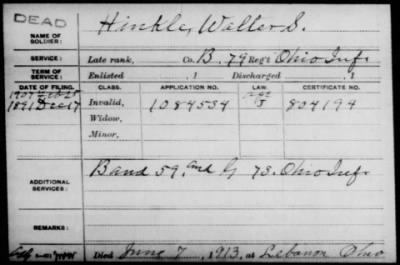 DEAD
NAME OF SOLDIER:
Hinkle, Walter S.
SERVICE:
Late rank, Co. B. 79 Reg't Ohio Inf.
TERM OF SERVICE:
Enlisted , 1 Discharged , 1
DATE OF FILING. CLASS. APPLICATION NO. LAW. CERTIFICATE NO.
1907 Feb 25
1891 Dec 17 Invalid, 1084534 804194
Widow,
Minor,
ADDITIONAL SERVICES:
Band 59. and G 73. Ohio Inf.
REMARKS:
Died June 7, 1913, at Lebanon Ohio